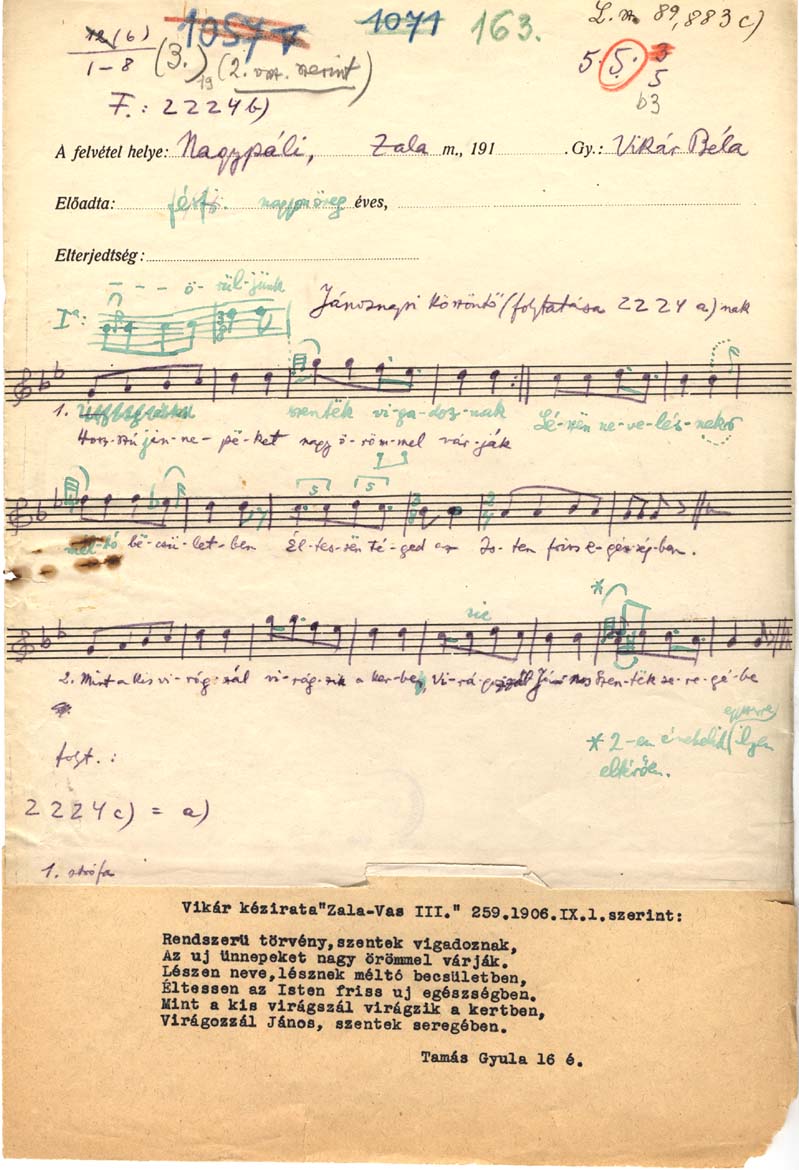 1057
1071
163.
L. sz. 89,883 c)
12(6)
1-8
(3.)
19
(2. vsz. szerint)
5. 5. 3
5
b3
F.: 2224b)
A felvétel helye: Nagypáli, Zala m., 191 . Gy.: Vikár Béla
Előadta: férfi. éves,
Elterjedtség:
ö - rül-jünk
Iª:
Jánosnapi köszöntő (folytatása 2224 a)nak
1. szentëk vi-ga-doz-nak Lé-szën ne-ve-lés-nek
Hosz-szú ün-ne-pë-ket nagy ö-röm-mel vár-ják
mél-tó bë-csü-let-ben Él-tes-sën té-ged az Is-ten friss e-gés-ség-ben.
5 5
sic
2. Mint a kis vi-rág-szál vi-rág-zik a ker-be, Vi-rá-gozzál Já-nos Szen-tëk se-re-gé-be
*
* 2-en énekelik (egyszerre) ilyen
eltérően.
folyt.:
2224c) = a)
1. strófa
Vikár kézirata"Zala-Vas III." 259.1906.IX.1.szerint:
Rendszerü törvény,szentek vigadoznak,
Az uj ünnepeket nagy örömmel várják.
Lészen neve,lésznek méltó becsületben,
Éltessen az Isten friss uj egészségben.
Mint a kis virágszál virágzik a kertben,
Virágozzál János, szentek seregében.
Tamás Gyula 16 é.